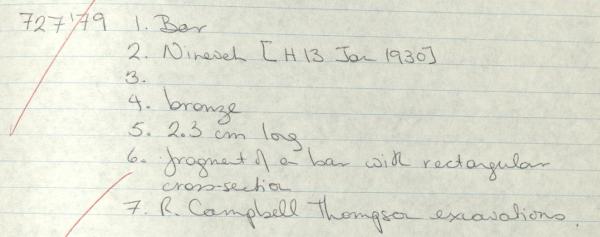 727'79 1. Bar
2. Nineveh [H 13 Jan 1930]
3.
4. bronze
5. 2.3 cm long
6. fragment of a bar with rectangular
cross-section
7. R. Campbell Thompson excavations.